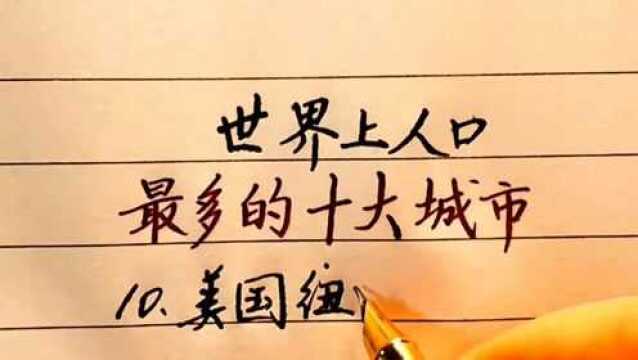 世界上人口
最多的十大城市
10.美国纽